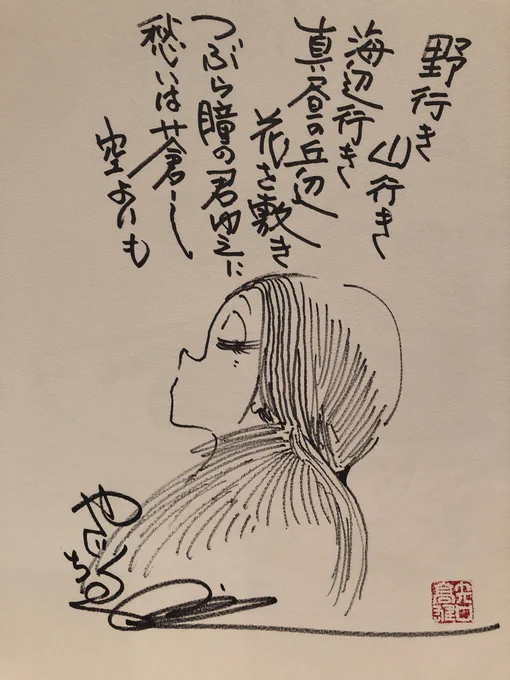 野行き
山行き
海辺行き
真昼の丘辺
花さ敷き
つぶら瞳の君ゆえに
愁いは蒼し
空よりも